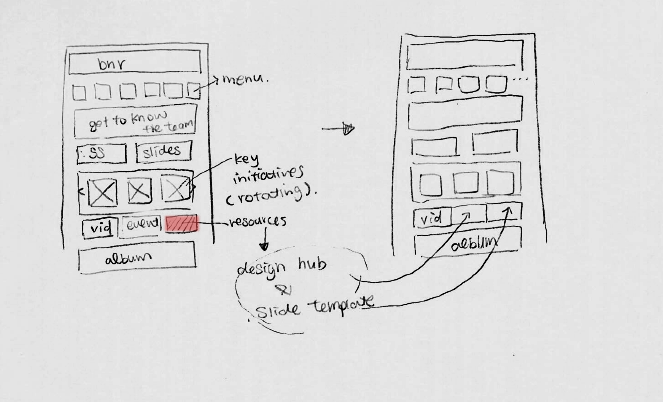 bnr
menu.
get to know
the team
SS
slides
key
initiatives
(rotating).
vid
event
resources
album
design hub
&
slide template
vid
album